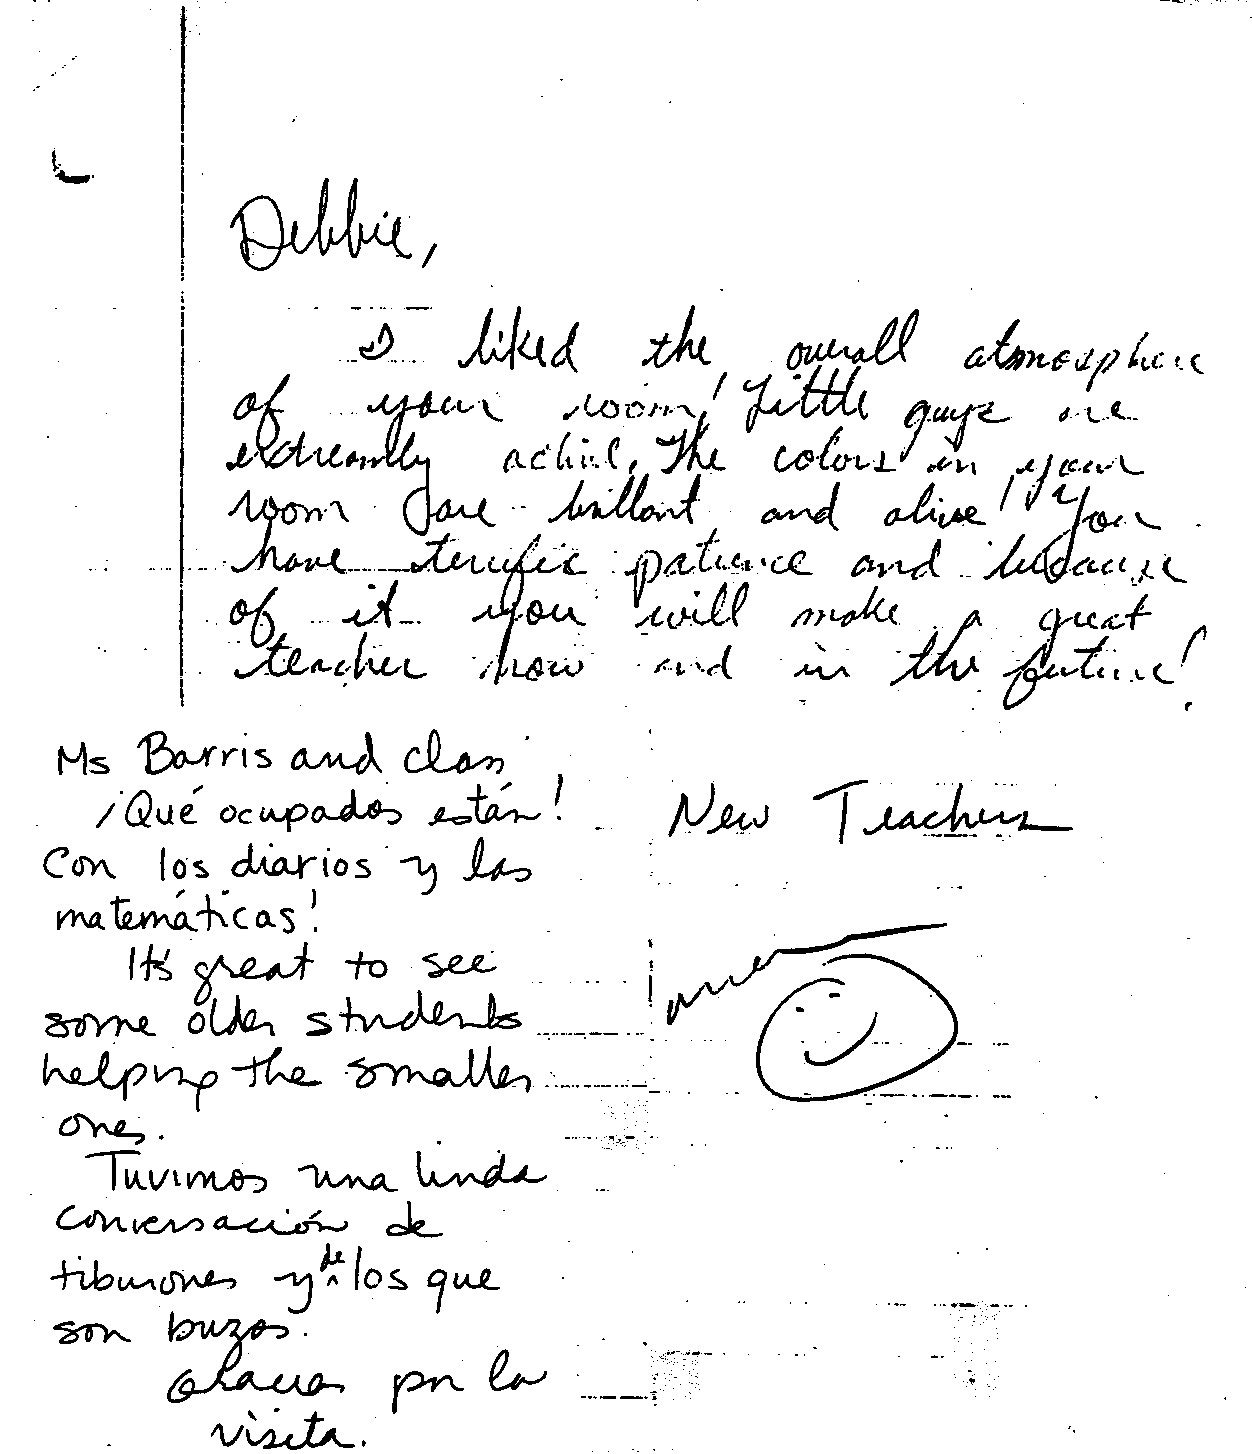 Debbie,
I liked the overall atmosphere
of your room! Little guys are
extreamly active. The colors in your
room are brillant and alive! You
have terrific patience and because
of it you will make a great
teacher now and in the future!
Ms Barris and class
¡Qué ocupados están!
Con los diarios y las
matemáticas!
It's great to see
some older students
helping the smaller
ones.
Tuvimos una linda
conversación de
tiburones y de los que
son buzos.
Gracias por la
visita.
New Teachers